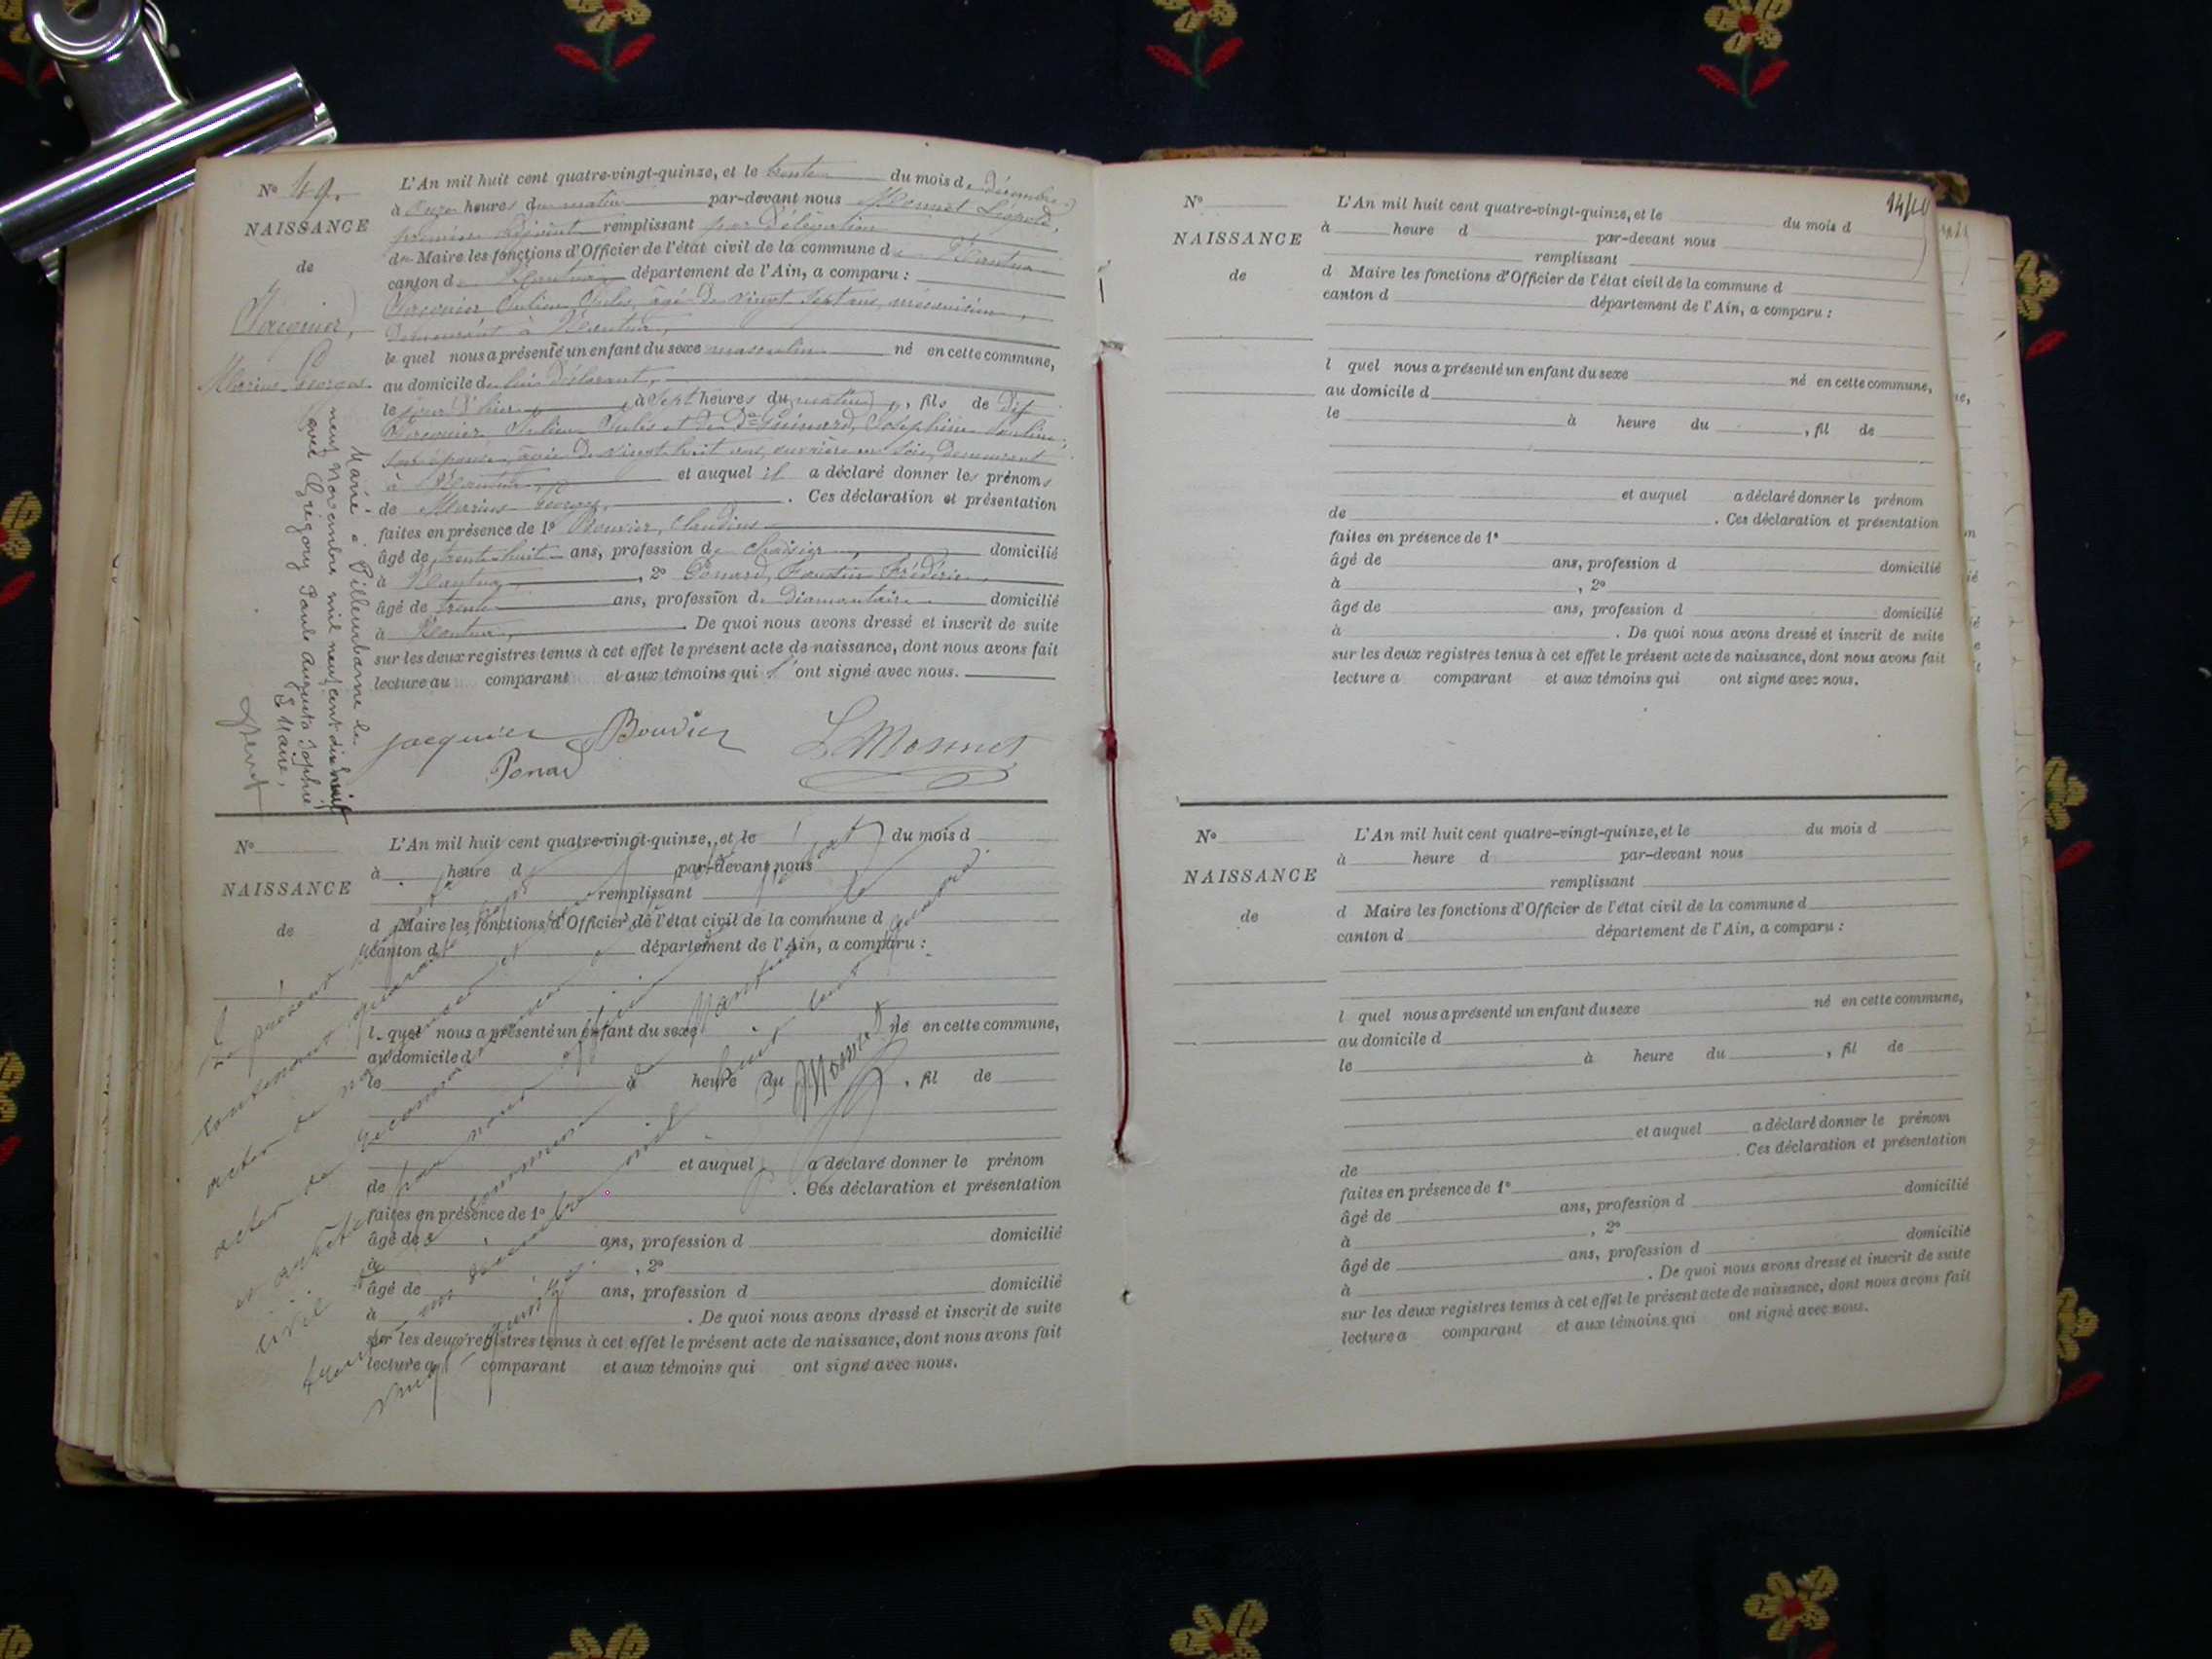 N° 49.
NAISSANCE
de
Jacquier,
Marius Georges.
L'An mil huit cent quatre-vingt-quinze, et le trente du mois de décembre
à onze heures du matin par-devant nous Monnet Léopold,
premier adjoint remplissant par délégation
du Maire les fonctions d'Officier de l'état civil de la commune de Nantua
canton de Nantua département de l'Ain, a comparu :
Jacquier Julien Jules, âgé de vingt sept ans, mécanicien,
demeurant à Nantua,
le quel nous a présenté un enfant du sexe masculin né en cette commune,
au domicile de lui déclarant,
le jour d'hier à sept heures du matin, fils de dit
Jacquier Julien Jules et de Guinard, Joséphine
son épouse, âgée de vingt huit ans, ouvrière en soie, demeurant
à Nantua et auquel il a déclaré donner les prénoms
de Marius Georges. Ces déclaration et présentation
faites en présence de 1° Bouvier, Claudius
âgé de trente huit ans, profession de domicilié
à Nantua, 2° Ponard, Faustin Frédéric,
âgé de trente ans, profession de diamantaire domicilié
à Nantua, De quoi nous avons dressé et inscrit de suite
sur les deux registres tenus à cet effet le présent acte de naissance, dont nous avons fait
lecture au comparant et aux témoins qui l'ont signé avec nous.
Jacquier Bouvier L Monnet
Ponard
Marié à Villeurbanne le
neuf Novembre mil neuf cent dix huit
avec Grégory Paule Augusta Sophie
Le Maire,
N°
NAISSANCE
de
L'An mil huit cent quatre-vingt-quinze, et le du mois d
à heure d par-devant nous
remplissant
d Maire les fonctions d'Officier de l'état civil de la commune d
canton d département de l'Ain, a comparu :
l quel nous a présenté un enfant du sexe né en cette commune,
au domicile d
le à heure du , fil de
et auquel a déclaré donner le prénom
de . Ces déclaration et présentation
faites en présence de 1°
âgé de ans, profession d domicilié
à , 2°
âgé de ans, profession d domicilié
à . De quoi nous avons dressé et inscrit de suite
sur les deux registres tenus à cet effet le présent acte de naissance, dont nous avons fait
lecture a comparant et aux témoins qui ont signé avec nous.
Le présent
contenant quarante
actes de naissances et
actes de reconnaissance
a arrêté par nous officier
civil de la commune de Nantua le
trente un décembre mil huit cent quatre
vingt quinze.
Monnet
N°
NAISSANCE
de
L'An mil huit cent quatre-vingt-quinze, et le du mois d
à heure d par-devant nous
remplissant
d Maire les fonctions d'Officier de l'état civil de la commune d
canton d département de l'Ain, a comparu :
l quel nous a présenté un enfant du sexe né en cette commune,
au domicile d
le à heure du , fil de
et auquel a déclaré donner le prénom
de . Ces déclaration et présentation
faites en présence de 1°
âgé de ans, profession d domicilié
à , 2°
âgé de ans, profession d domicilié
à . De quoi nous avons dressé et inscrit de suite
sur les deux registres tenus à cet effet le présent acte de naissance, dont nous avons fait
lecture a comparant et aux témoins qui ont signé avec nous.
N°
NAISSANCE
de
L'An mil huit cent quatre-vingt-quinze, et le du mois d
à heure d par-devant nous
remplissant
d Maire les fonctions d'Officier de l'état civil de la commune d
canton d département de l'Ain, a comparu :
l quel nous a présenté un enfant du sexe né en cette commune,
au domicile d
le à heure du , fil de
et auquel a déclaré donner le prénom
de . Ces déclaration et présentation
faites en présence de 1°
âgé de ans, profession d domicilié
à , 2°
âgé de ans, profession d domicilié
à . De quoi nous avons dressé et inscrit de suite
sur les deux registres tenus à cet effet le présent acte de naissance, dont nous avons fait
lecture a comparant et aux témoins qui ont signé avec nous.